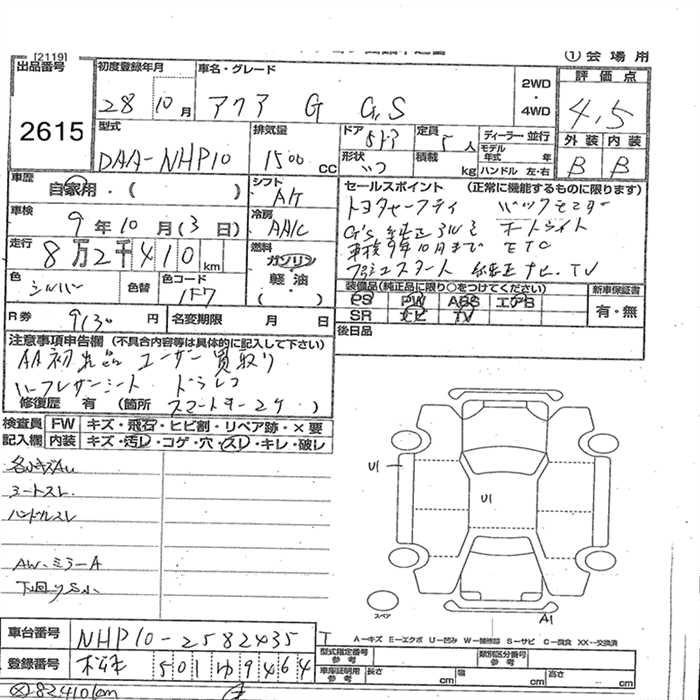 [2119]
① 会場用
出品番号
2615
初度登録年月
28 10 月
車名・グレード
アクア G G's
2WD ・ 4WD
評価点
4.5
外装 内装
B B
型式
DAA-NHP10
排気量
1500 cc
ドア 5ドア
定員 5 人
形状
積載 kg
ディーラー・並行
モデル年式 年
ハンドル 左・右
車歴
自家用・( )
シフト
AT
車検
9 年 10 月 (3 日)
冷房
AAC
走行
8 万 2 千 4 1 0 km
燃料
ガソリン
軽・油
( )
色
シルバー
色替
色コード
1F7
R券
9130 円
名変期限 月 日
セールスポイント (正常に機能するものに限ります)
トヨタセーフティ バックモニター
G's純正アルミ オートライト
車検9年10月まで ETC
プッシュスタート 純正ナビ、TV
装備品(純正品に限り○をつけてください)
PS PW ABS エアB
SR ナビ TV
新車保証書
有・無
後日品
注意事項申告欄 (不具合内容等は具体的に記入して下さい)
AA初出品 ユーザー買取り
ハーフレザーシート ドラレコ
修復歴 有 (箇所 スマートキー2ケ )
検査員記入欄
FW キズ・飛石・ヒビ割・リペア跡・×要
内装 キズ・汚レ・コゲ・穴・スレ・キレ・破レ
各小キズAU
シートスレ
ハンドルスレ
AW、ミラーA
下回りS小
U1
U1
スペア
A1
A-キズ E-エクボ U-凹み W-補修跡 S-サビ C-腐食 XX-交換済
車台番号
NHP10-2582435
型式指定番号 参考
類別区分番号 参考
登録番号
501 ゆ 9464
車庫証明用 参考
長さ cm
幅 cm
高さ cm
82410km